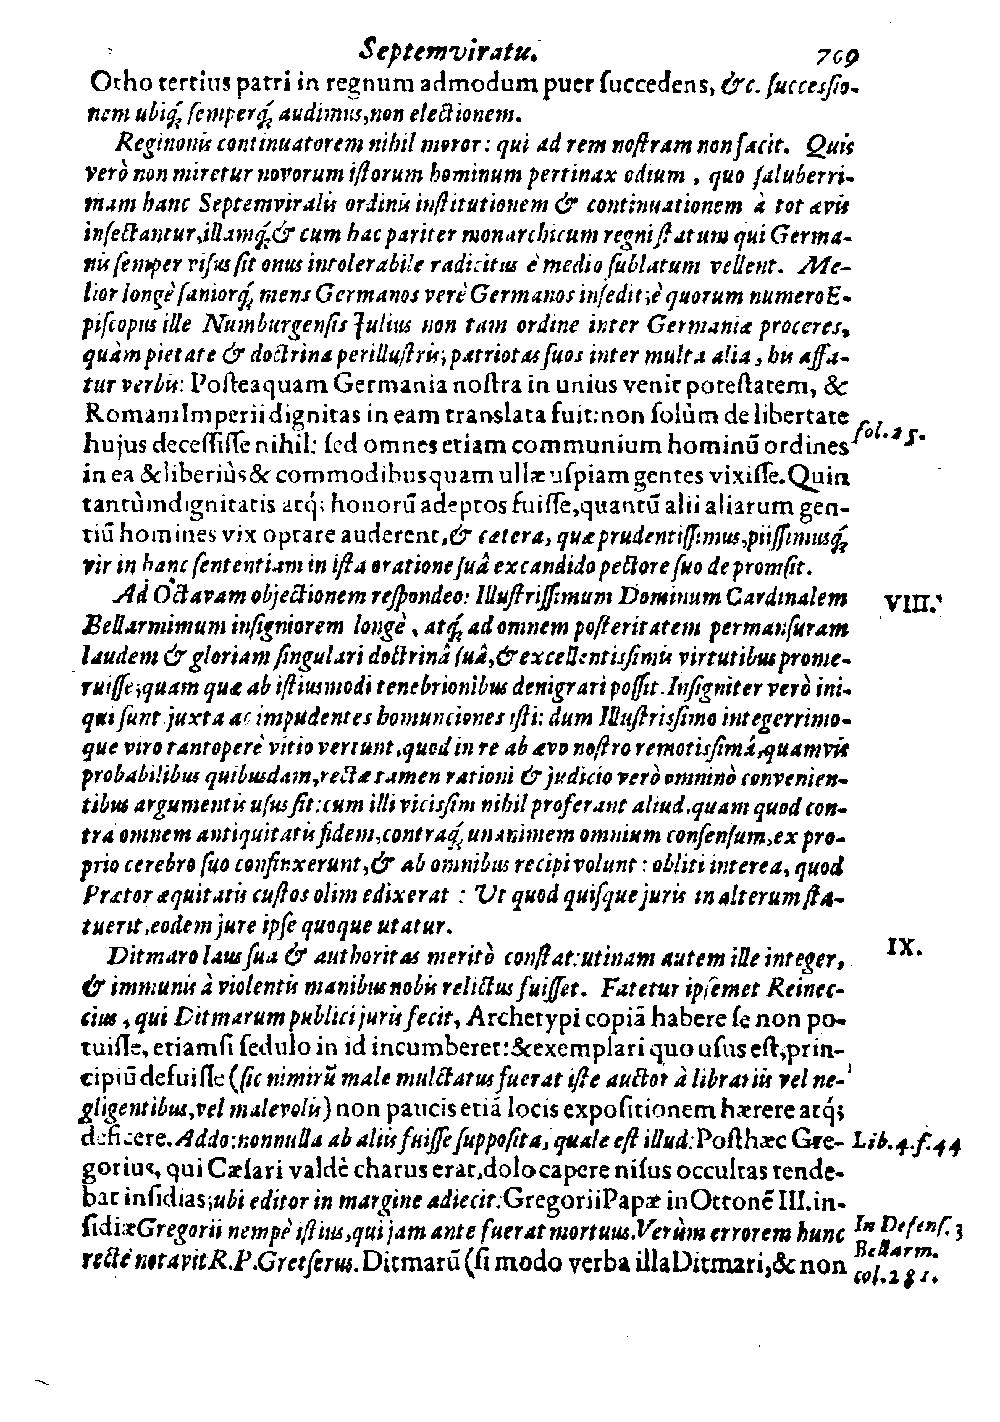 Septemviratu. 709
Otho tertius patri in regnum admodum puer ſuccedens, &c. ſucceſſio-
nem ubiq́; ſemperq́; audimus, non electionem.
Reginonis continuatorem nihil moror: qui ad rem noſtram non facit. Quis
verò non miretur novorum iſtorum hominum pertinax odium, quo ſaluberri-
mam hanc Septemviralis ordinis inſtitutionem & continuationem à tot avis
inſectantur, illamq́; & cum hac pariter monarchicum regni ſtatum qui Germa-
nis ſemper viſus ſit onus intolerabile radicitus è medio ſublatum vellent. Me-
lior longè ſaniorq́; mens Germanos verè Germanos inſedit; è quorum numero E-
piſcopus ille Numburgenſis Julius non tam ordine inter Germaniæ proceres,
quàm pietate & doctrina perilluſtris; patriotas ſuos inter multa alia, his affa-
tur verbis: Poſteaquam Germania noſtra in unius venit poteſtatem, &
Romani Imperii dignitas in eam translata fuit: non ſolùm de libertate
hujus deceſſiſſe nihil: ſed omnes etiam communium hominū ordines fol. 25.
in ea & liberiùs & commodibus quam ullæ uſpiam gentes vixiſſe. Quin
tantùm dignitatis atq́; honorū adeptos fuiſſe, quantū alii aliarum gen-
tiū homines vix optare auderent, & cætera, quæ prudentiſſimus, piiſſimusq́;
vir in hanc ſententiam in iſta oratione ſuâ ex candido pectore ſuo depromſit.
Ad Octavam objectionem reſpondeo: Illuſtriſſimum Dominum Cardinalem VIII.
Bellarmimum inſigniorem longè, atq́; ad omnem poſteritatem permanſuram
laudem & gloriam ſingulari doctrinâ ſuâ, & excellentiſſimis virtutibus prome-
ruiſſe; quam quæ ab iſtiusmodi tenebrionibus denigrari poſſit. Inſigniter verò ini-
qui ſunt juxta ac impudentes homunciones iſti: dum Illuſtriſſimo integerrimo-
que viro tantoperè vitio vertunt, quod in re ab ævo noſtro remotiſſimâ, quamvis
probabilibus quibusdam, rectæ tamen rationi & judicio verò omninò convenien-
tibus argumentis uſus ſit: cum illi viciſſim nihil proferant aliud, quam quod con-
tra omnem antiquitatis fidem, contraq́; unanimem omnium conſenſum, ex pro-
prio cerebro ſuo confinxerunt, & ab omnibus recipi volunt: obliti interea, quod
Prætor æquitatis cuſtos olim edixerat: Ut quod quiſque juris in alterum ſta-
tuerit, eodem jure ipſe quoque utatur.
Ditmaro laus ſua & authoritas meritò conſtat: utinam autem ille integer, IX.
& immunis à violentis manibus nobis relictus fuiſſet. Fatetur ipſemet Reinec-
cius, qui Ditmarum publici juris fecit, Archetypi copiā habere ſe non po-
tuiſſe, etiamſi ſedulo in id incumberet: & exemplari quo uſus eſt, prin-
cipiū defuiſſe (ſic nimirū male mulctatus fuerat iſte auctor à librariis vel ne-
gligentibus, vel malevolis) non paucis etiā locis expoſitionem hærere atq́;
deficere. Addo: nonnulla ab aliis fuiſſe ſuppoſita, quale eſt illud: Poſthæc Gre- Lib. 4. f. 44
gorius, qui Cæſari valdè charus erat, dolo capere niſus occultas tende-
bat inſidias; ubi editor in margine adiecit: Gregorii Papæ in Ottonē III. in-
ſidiæ Gregorii nempè iſtius, qui jam ante fuerat mortuus. Verùm errorem hunc In Defenſ. 3
rectè notavit R. P. Gretſerus. Ditmarū (ſi modo verba illa Ditmari, & non Bellarm.
col. 281.